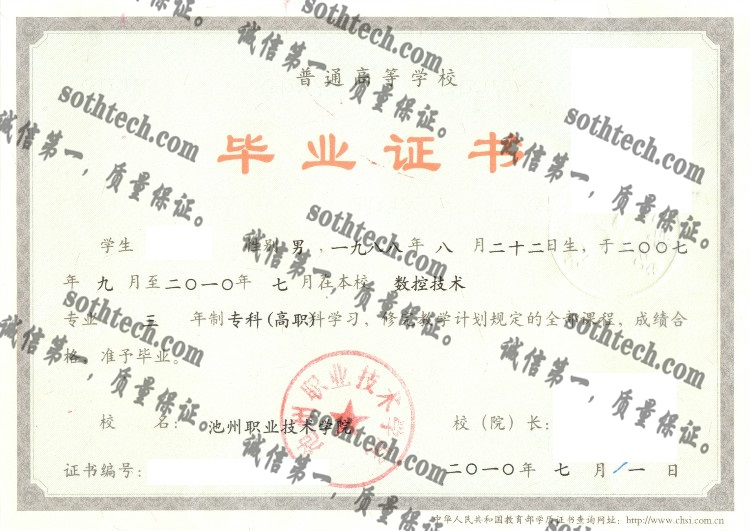 普通高等学校
毕业证书
学生 性别 男，一九八八年 八 月二十二日生，于二〇〇七
年 九 月至二〇一〇年 七 月在本校 数控技术
专业 三 年制专科(高职)科学习，修完教学计划规定的全部课程，成绩合
格，准予毕业。
校 名：池州职业技术学院 校（院）长：
证书编号： 二〇一〇年 七 月 一 日
中华人民共和国教育部学历证书查询网址：http://www.chsi.com.cn
池州职业技术学院
sothtech.com
诚信第一，质量保证。
sothtech.com
诚信第一，质量保证。
sothtech.com
诚信第一，质量保证。
sothtech.com
诚信第一，质量保证。
sothtech.com
诚信第一，质量保证。
sothtech.com
诚信第一，质量保证。
sothtech.com
诚信第一，质量保证。